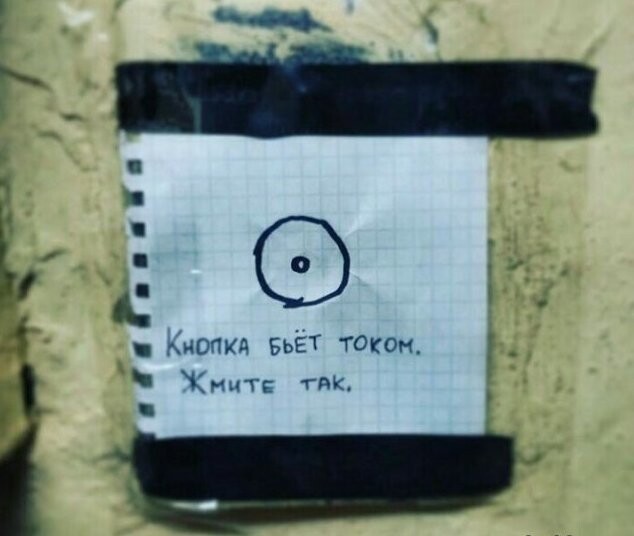 Кнопка бьёт током.
Жмите так.